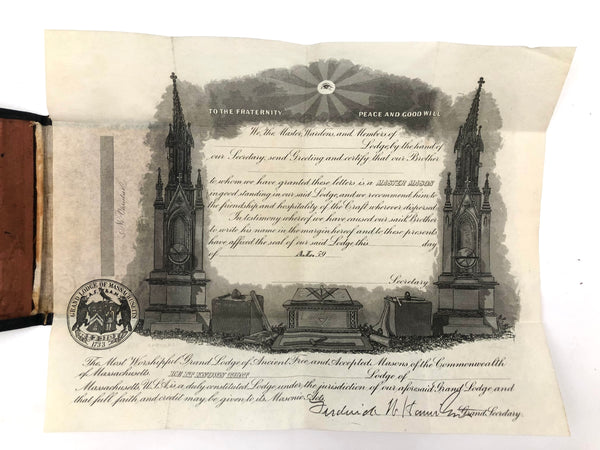 TO THE FRATERNITY PEACE AND GOOD WILL
We, the Master, Wardens, and Members of
Lodge, by the hand of
our Secretary, send Greeting and certify that our Brother
to whom we have granted these letters is a MASTER MASON
in good standing in our said Lodge, and we recommend him to
the friendship and hospitality of the Craft wherever dispersed.
In testimony whereof we have caused our said Brother
to write his name in the margin hereof and to these presents
have affixed the seal of our said Lodge, this day
of A.L. 59
Secretary
GRAND LODGE OF MASSACHUSETTS
A.F. & A.M.
1733
The Most Worshipful Grand Lodge of Ancient Free and Accepted Masons of the Commonwealth
of Massachusetts BE IT KNOWN THAT Lodge of
Massachusetts, U.S.A. is a duly constituted Lodge under the jurisdiction of our aforesaid Grand Lodge and
that full faith and credit may be given to its Masonic Acts.
Frederick W. Grand Secretary.